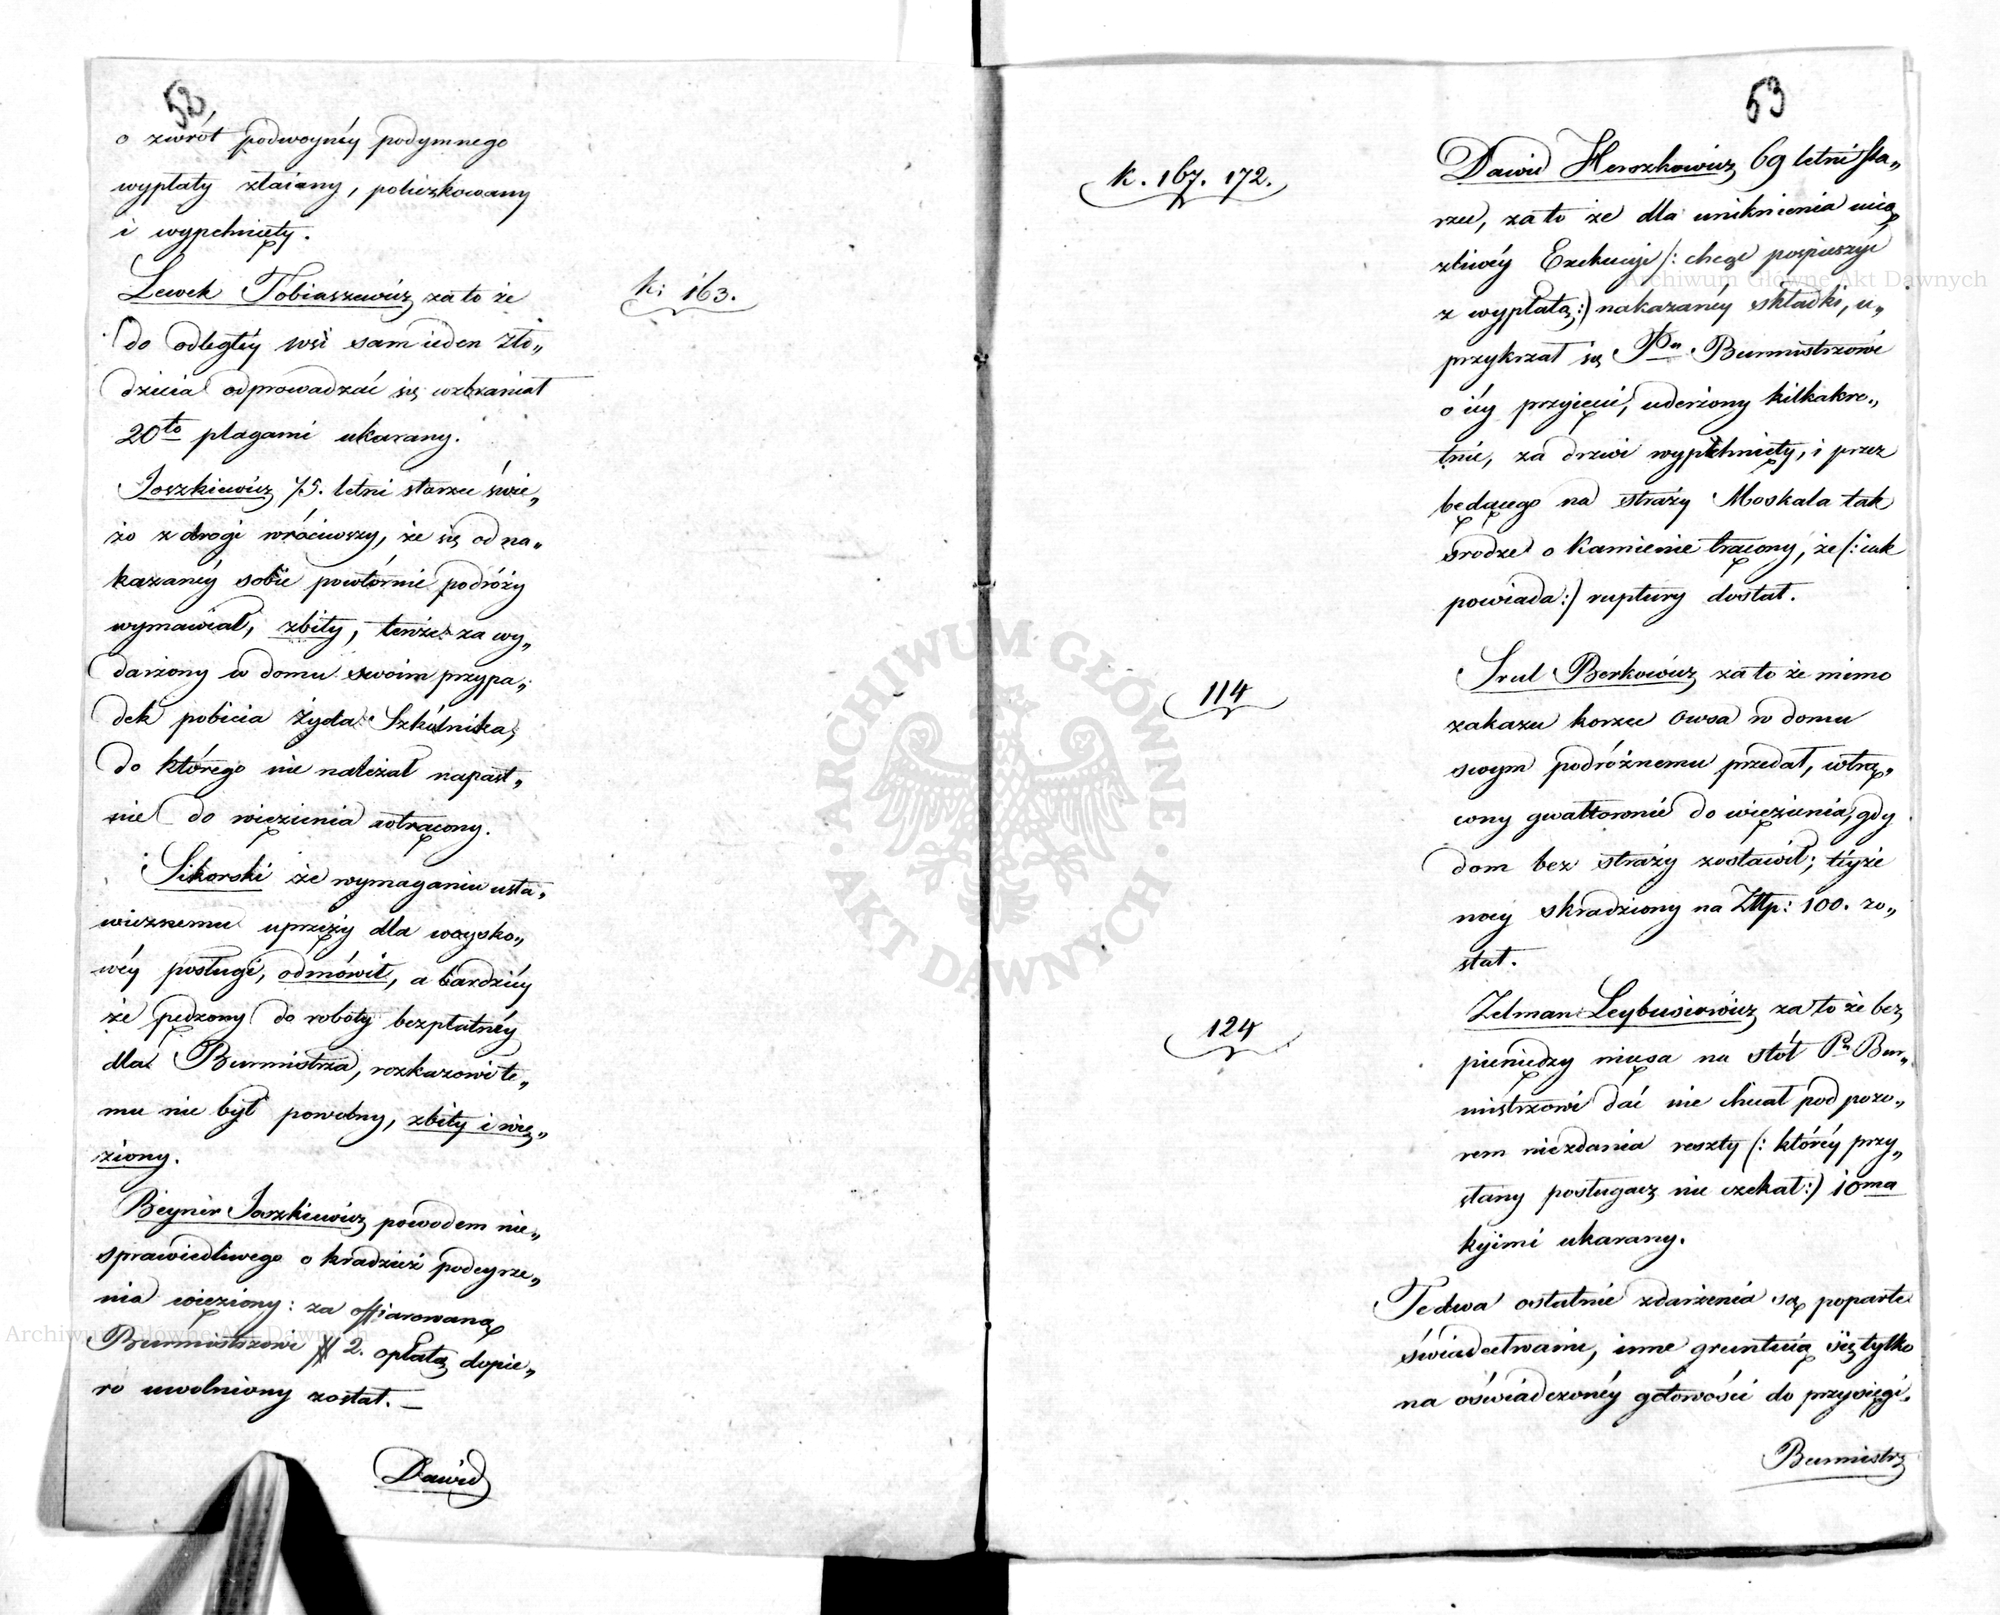 52.
o zwrót podwoynéy podymnego
wypłaty złaiany, policzkowany
i wypchnięty.
Lewek Tobiaszewicz za to że
k: 163.
do odległéy wsi sam ieden zło„
dzieia odprowadzać się wzbraniał
20to plagami ukarany.
Joszkiewicz 75. letni starzec świe„
żo z drogi wróciwszy, że się od na„
kazanéy sobie powtórnie podróży
wymawiał, zbity, tenże za wy„
darzony w domu swoim przypa„
dek pobicia żyda Szkólnika,
do którego nie należał napast„
nie do więzienia wtrącony.
Sikorski że wymaganiu usta„
wicznemu uprzęży dla woysko„
wéy posługi, odmówił, a bardziéy
że pędzony do roboty bezpłatnéy
dla Burmistrza, rozkazowi te„
mu nie był powolny, zbity i wię„
ziony.
Beynir Joszkiewicz powodem nie„
sprawiedliwego o kradzież podeyrze„
nia więziony: za offiarowaną
Burmistrzowi # 2. opłatą dopie„
ro uwolniony został. —
Dawid
53
k. 167. 172.
Dawid Herszkowicz 69 letni sta„
rzec, za to że dla uniknienia ucią
żliwéy Exekucyi (: chcąc pospieszyć
z wypłatą :) nakazanéy składki, u„
przykrzał się Pu Burmistrzowi
o iéy przyięcie, uderzony kilkakro„
tnie, za drzwi wypchnięty, i przez
będącego na straży Moskala tak
srodze o kamienie trącony, że (: iak
powiada :) ruptury dostał.
114
Srul Berkowicz za to że mimo
zakazu korzec Owsa w domu
swym podróżnemu przedał, wtrą„
cony gwałtownie do więzienia, gdy
dom bez straży zostawił; téyże
nocy skradziony na Złłp: 100. zo„
stał.
124
Zelman Leybusiewicz za to że bez
pieniędzy mięsa na stół Pu Bur„
mistrzowi dać nie chciał pod pozo„
rem niezdania reszty (: któréy przy„
słany posługacz nie czekał :) 10ma
kyimi ukarany.
Te dwa ostatnie zdarzenia są poparte
świadectwami, inne gruntuią się tylko
na oświadczonéy gotowości do przysięgi.
Burmistrz
Archiwum Główne Akt Dawnych
Archiwum Główne Akt Dawnych
ARCHIWUM GŁÓWNE
AKT DAWNYCH